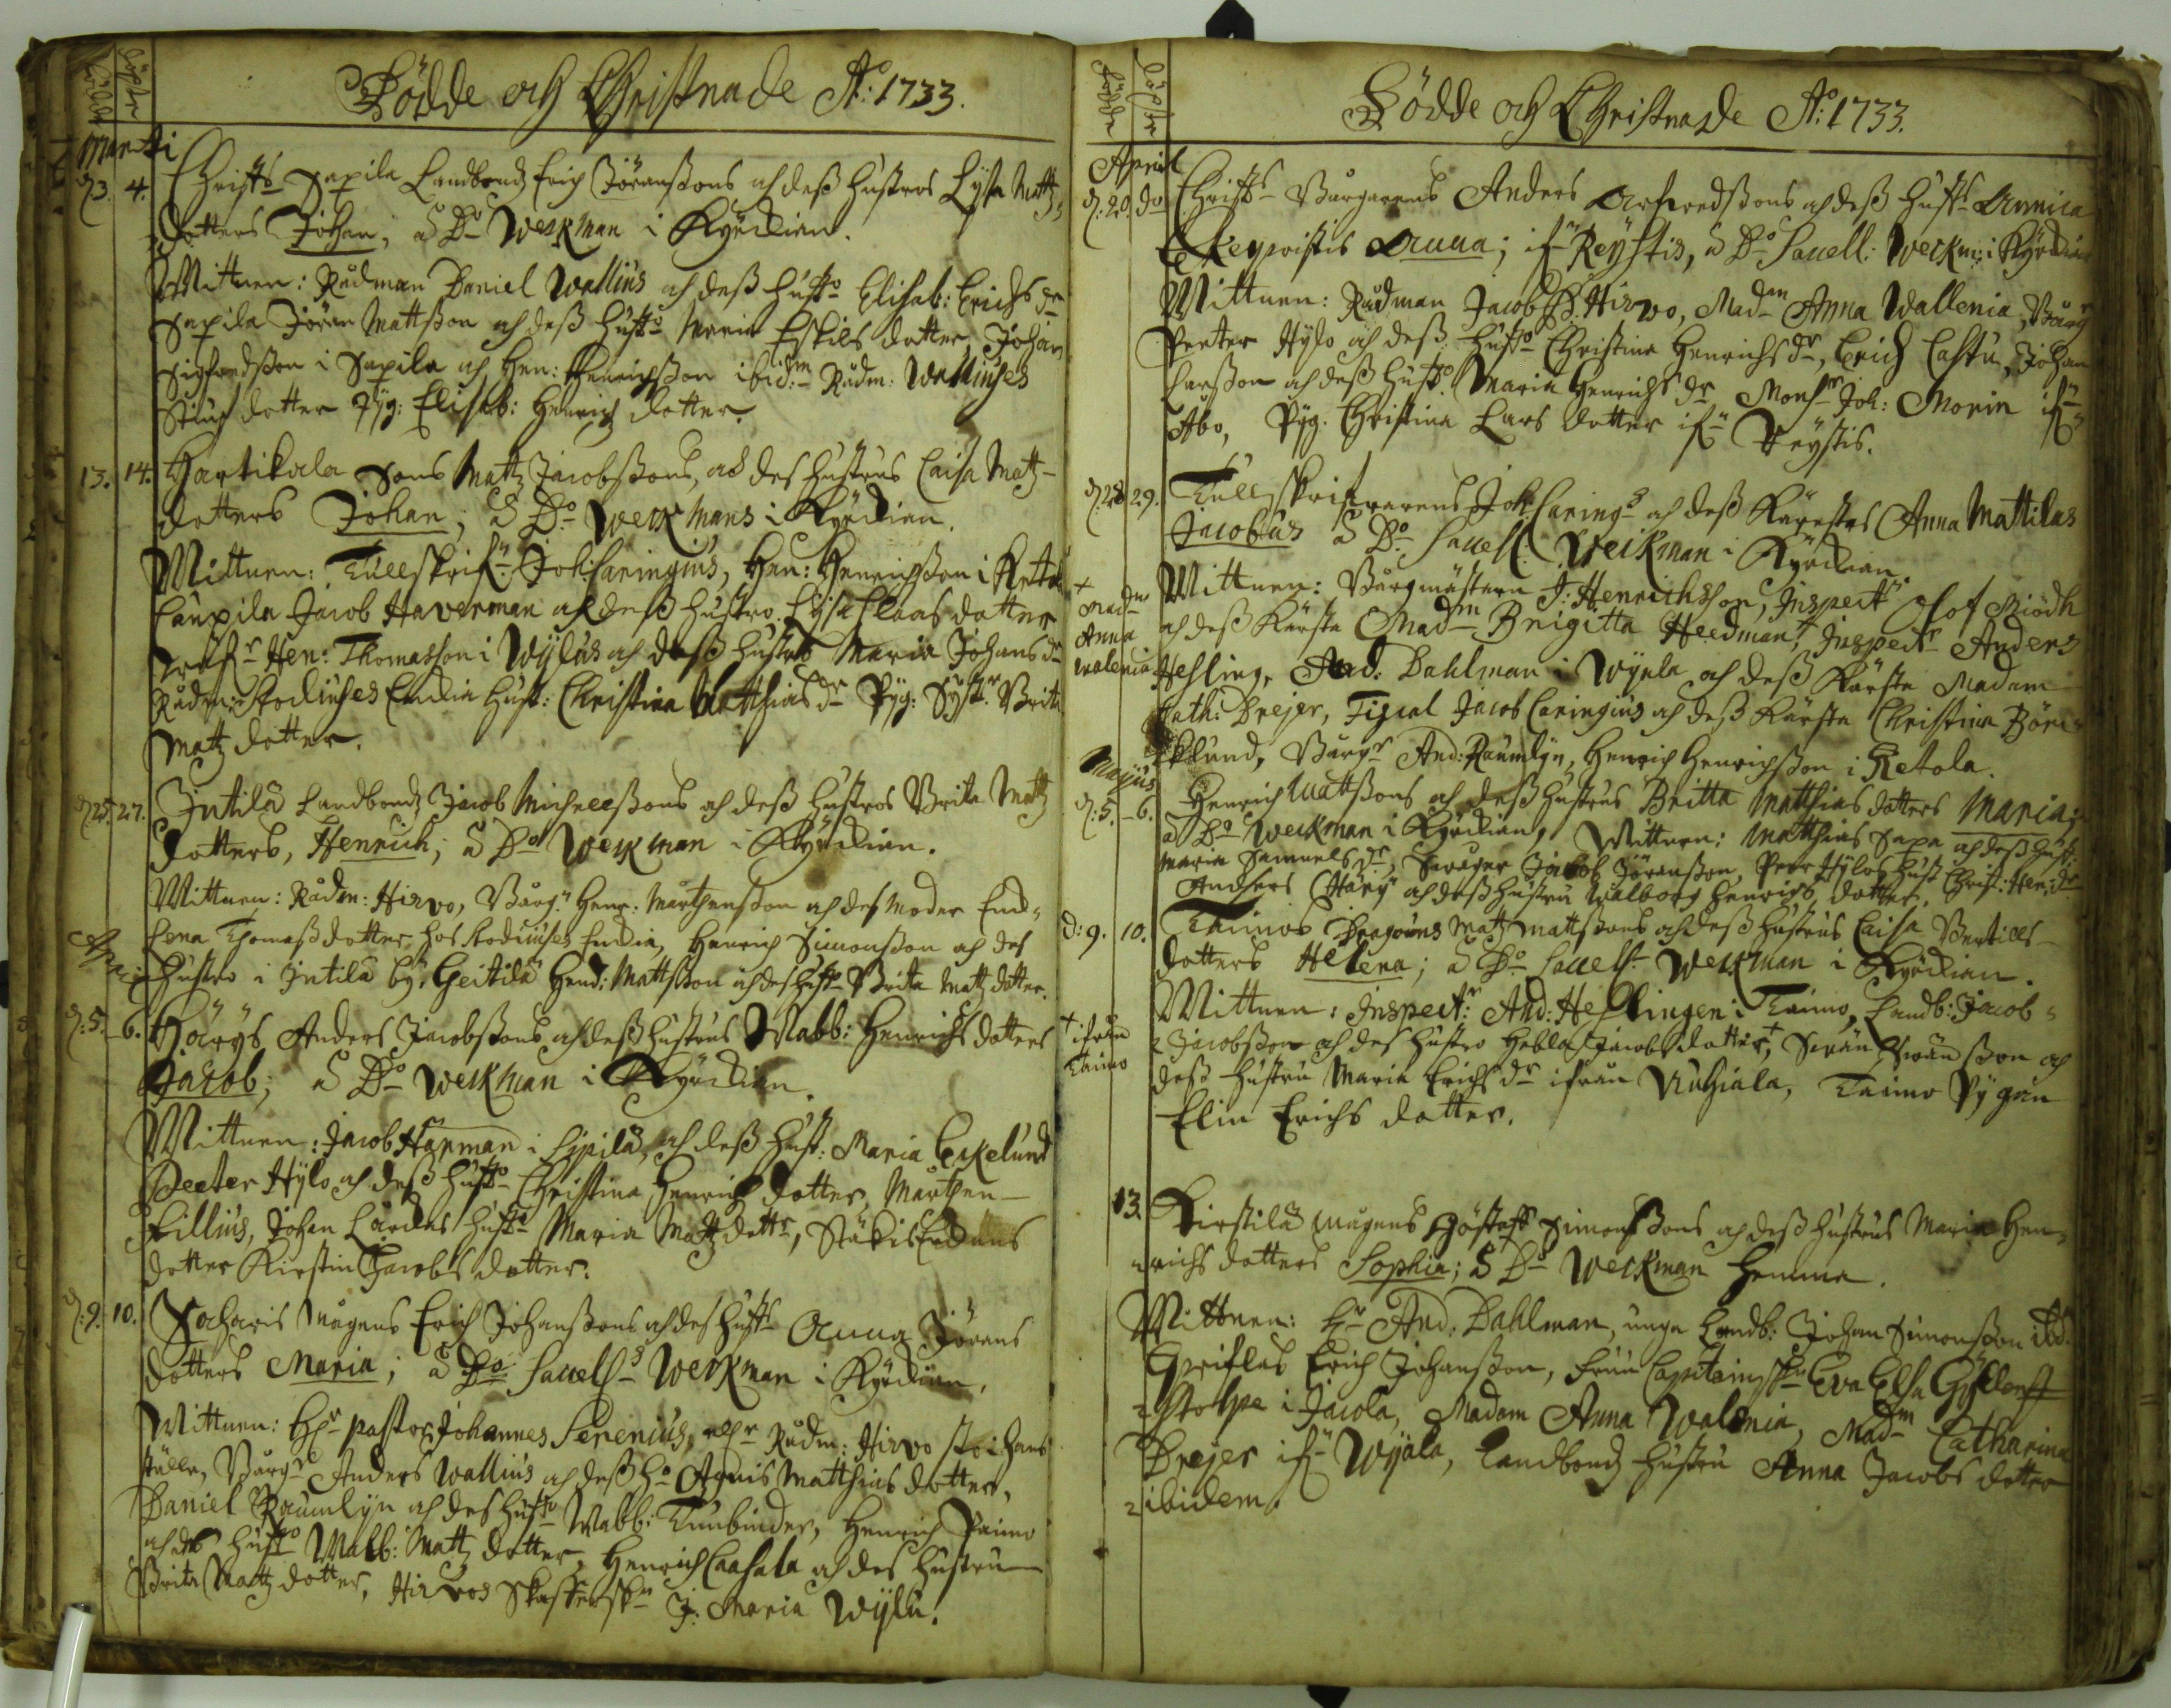 Födde och Christnade Ao: 1733.
Martii
d. 3. 4. Christs Sapila Landbondz Erich Jöranssons och dess hustros Lysa Mattz
dotters Johan, a Do Weckman i Kyrckian.
Wittnen: Rådman Daniel Wallius och dess hustro Elisab: Erichs dr
Sapila Jöran Mattsson och dess hustro Maria Eskils dotter, Johan
Sigfredsson i Sapila och Hen: Henrichsson ibid:m Rådm: Walliuses
Stiuf dotter Pyg: Elisab: Henrichz dotter.
13. 14. Hartikala Sons Mattz Jacobssons, och des hustrus Caisa Matz-
dotters Johan; a Do Weckmans i Kyrckian.
Wittnen: Tullskrif:n Joh: Caringius, Hen: Henrichsson i Retola
Caupila Jacob Haverman och dess hustro Lysa Claas dotter
Hen: Thomasson i Wylus och dess hustro Maria Johans dr
Rådm: Rodiuses Enckia hust: Christina Matthias dr Pyg: Brita
Matz dotter.
d. 25. 27. Intilä Landbondz Jacob Michelssons och dess hustros Brita Mattz
dotters, Henrich; a Do Weckman i Kyrckian.
Wittnen: Rådm: Hirvo, Bårg:n Henr: Mårthensson och des Moder Enck:
Lena Thomassdotter hos Rodiuses Enckia, Henrich Simonsson och des
April
hustro i Intilä by, Geitilä Hend: Mattsson och des hust:o Brita Matz dotter.
d: 5. 6. Härys Anders Jacobssons och dess hustrus Walb: Henrichs dotters
Jacob; a Do Weckman i Kyrckian.
Wittnen: Jacob Harman i Sipilä, och dess hust: Maria Eckelund
Peeter Hylo och dess hustro Christina Henrichs dotter, Mårthen
Fillius, Johan Lärdas hust:o Maria Matz dottr,
dotter Kirstin Jacobs dotter.
d: 9. 10. Sacharis Mågens Erich Johanssons och des hustr:s Anna Jörans
dotters Maria; a Do Sacell:s Weckman i Kyrckian.
Wittnen: Hr pastor Johannes Serenius, Rådm: Hirvo stoi hans
ställe, Bårg:r Anders Wallius och dess H:o Agnis Matthias dotter,
Daniel Raumlyn och des hustro Walb: Tunbinder, Henrich Paimo
och des hustro Walb: Mattz dotter, Henrich Caasala och des hustru
Brita Mattz dotter, Hirvos J: Maria Wylu.
Födde och Christnade Ao: 1733.
April
d: 20. do Christs Bårgarens Anders Arfwedssons och dess hust:s Annica
Anna; if:n Reystis, a Do Sacell: Weckm: i Kyrckian
Wittnen: Rådman Jacob Hirvo, Madm Anna Wallenia, Bårg:r
Peeter Hylo och dess hustro Christina Henrichs dr, Erich Castu, Johan
Larsson och dess hustro Maria Henrichs dr Monsr Joh: Morin if:n
Åbo, Pyg. Christina Lars dotter if:n Reystis.
d: 28 29. Tull skrifvarens Joh: Carings och dess Kärestas Anna Mattilas
Jacobus a Do Sacell: Weckman i Kyrckian.
Wittnen: Bårgmästern J: Henrichsson, Inspectr Olof Biödh
och dess Kärsta Madm Brigitta Heedman,+ Inspectr Anders
+ Madm
Anna
Walenia
Hesling, And. Dahlman i Wyala och dess Kärsta Madam
Cath: Drejer, Fiscal Jacob Caringius och dess Kärsta Christina Björk
klund, Bårg:r And: Raumlyn, Henrich Henrichsson i Retola.
Majus
d: 5. 6. Henrich Mattssons och dess hustrus Britta Matthias dotters Maria;
a Do Weckman i Kyrckian, Wittnen: Matthias Sapa och dess hust:
Maria Samuels dr, Swager Jacob Jöransson, Peer Hylos hust Christ: Hen: dr
Anders Häry och dess hustru Walborg Henrichs dotter.
d: 9. 10. Taimos Dragouns Matz Mattssons och dess hustrus Caisa Bertills-
dotters Helena; a Do Sacell:s Weckman i Kyrckian.
Wittnen: Inspectr: And: Heslingen i Taimo, Landb: Jacob
Jacobsson och des hustro Hebla Jacobs dotter,+ Swän Swänsson och
+ ifrån
Taimo
dess hustru Maria Erichs dr ifrån Nuhiala, Taimo Pygan
Elin Erichs dotter.
13. Kirstilä Mågens Göstaff Simonssons och dess hustrus Maria Hen-
richs dotters Sophia; a Do Weckman hemma.
Wittnen: Hr And: Dahlman, unge Landb: Johan Simonsson ibd:
Erich Johansson, Fruu Capitainskn Eva Elsa
Stolpe i Jacola, Madam Anna Walenia, Madm Catharina
Drejer if:n Wyala, Landbondz hustru Anna Jacobs dotter
ibidem.